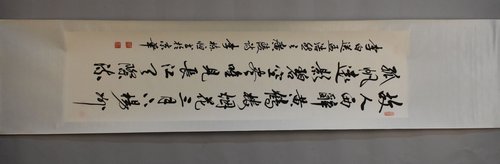 故人西辭黃鶴樓烟花三月下揚州
孤帆遠影碧空尽唯見長江天際流
李白送孟浩然之廣陵詩 李 書於京華